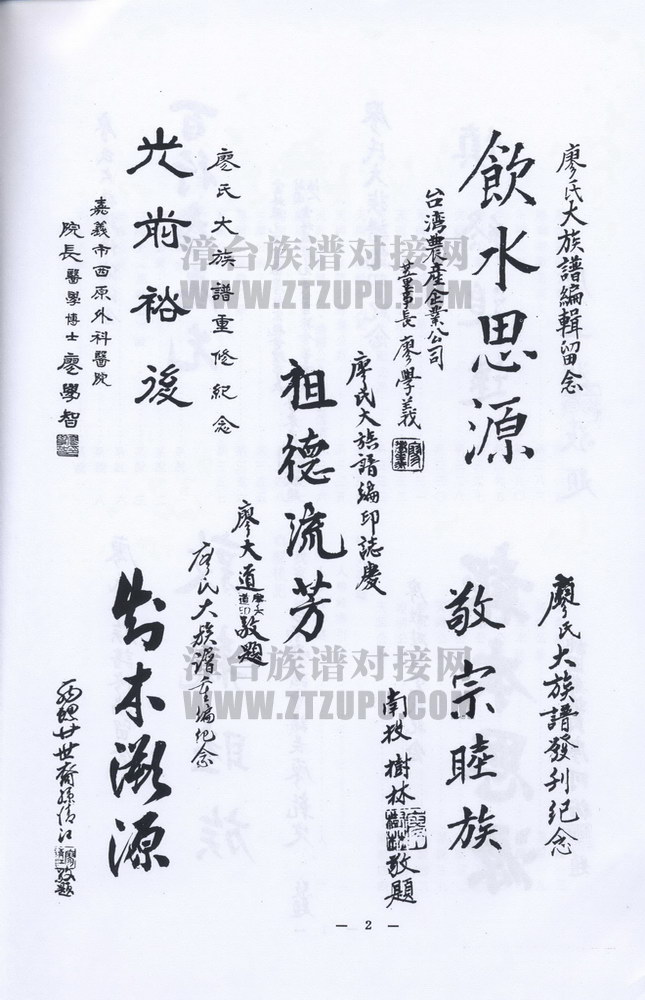 廖氏大族譜編輯留念
飲水思源
台湾農産企業公司
董事長廖學義
廖氏大族譜發刊纪念
敬宗睦族
南投樹林敬題
廖氏大族譜编印誌慶
祖德流芳
廖大道敬題
廖氏大族譜重修紀念
光前裕後
嘉義市西原外科醫院
院長醫學博士廖學智
廖氏大族譜重编纪念
木溯源
西螺廿世裔孫清江敬題
漳台族谱对接网
WWW.ZTZUPU.COM
漳台族谱对接网
WWW.ZTZUPU.COM
— 2 —